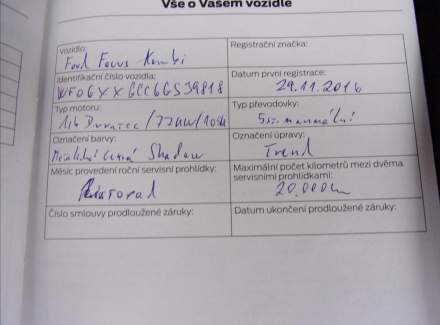 Vše o Vašem vozidle
Vozidlo: Registrační značka:
Ford Focus Kombi
Identifikační číslo vozidla: Datum první registrace:
WF06XXGCC6GS39818 29.11.2016
Typ motoru: Typ převodovky:
1,6 Duratec/77kW/105k 5st. manuální
Označení barvy: Označení úpravy:
Shadow Trend
Měsíc provedení roční servisní prohlídky: Maximální počet kilometrů mezi dvěma
servisními prohlídkami:
Listopad 20.000km
Číslo smlouvy prodloužené záruky: Datum ukončení prodloužené záruky: